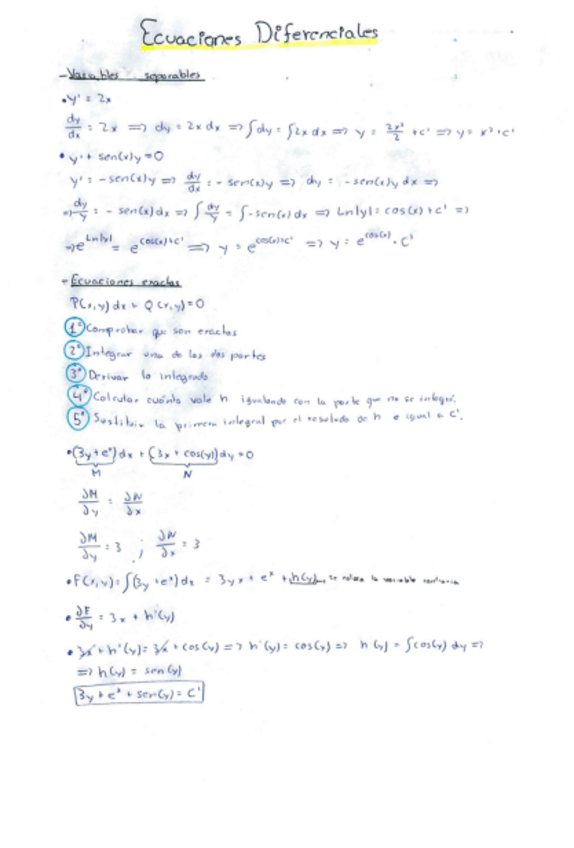 Ecuaciones Diferenciales
- Variables separables
• y' = 2x
dy/dx = 2x => dy = 2x dx => ∫dy = ∫2x dx => y = 2x²/2 + C' => y = x² + C'
• y' + sen(x)y = 0
y' = -sen(x)y => dy/dx = -sen(x)y => dy = -sen(x)y dx =>
=> dy/y = -sen(x)dx => ∫dy/y = ∫-sen(x)dx => Ln|y| = cos(x) + C' =>
=> e^Ln|y| = e^cos(x)+C' => y = e^cos(x)+C' => y = e^cos(x) · C'
- Ecuaciones exactas
P(x,y)dx + Q(x,y) = 0
1º Comprobar que son exactas
2º Integrar una de las dos partes
3º Derivar lo integrado
4º Calcular cuánto vale h igualando con la parte que no se integró.
5º Sustituir la primera integral por el resultado de h e igual a C'.
• (3y + e^x)dx + (3x + cos(y))dy = 0
M N
∂M/∂y = ∂N/∂x
∂M/∂y = 3 ; ∂N/∂x = 3
• F(x,y) = ∫(3y + e^x)dx = 3yx + e^x + h(y) se la variable
• ∂F/∂y = 3x + h'(y)
• 3x + h'(y) = 3x + cos(y) => h'(y) = cos(y) => h(y) = ∫cos(y)dy =>
=> h(y) = sen(y)
3y + e^x + sen(y) = C'